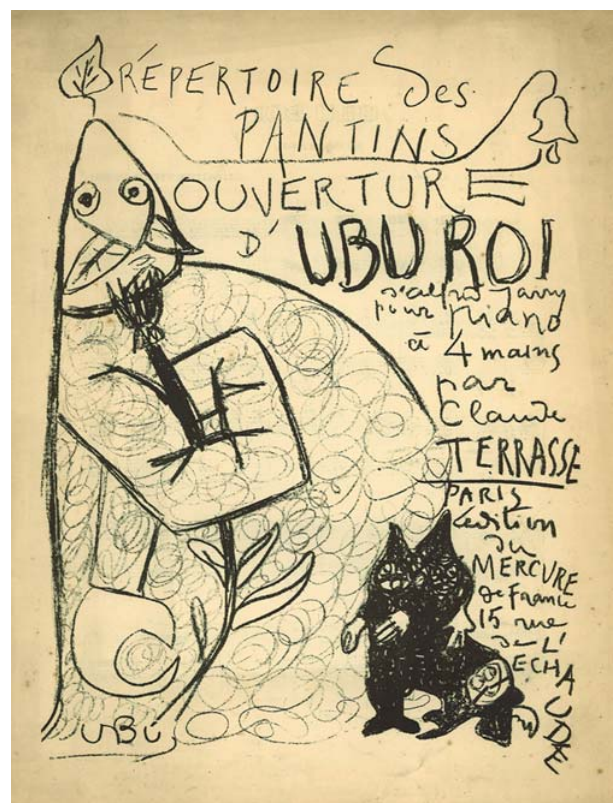 RÉPERTOIRE Des
PANTINS
OUVERTURE
D'UBU ROI
d'alfred Jarry
pour piano
à 4 mains
par
Claude
TERRASSE
PARIS
édition
du
MERCURE
de France
15 rue
de L'
ECHAUDÉ
UBU